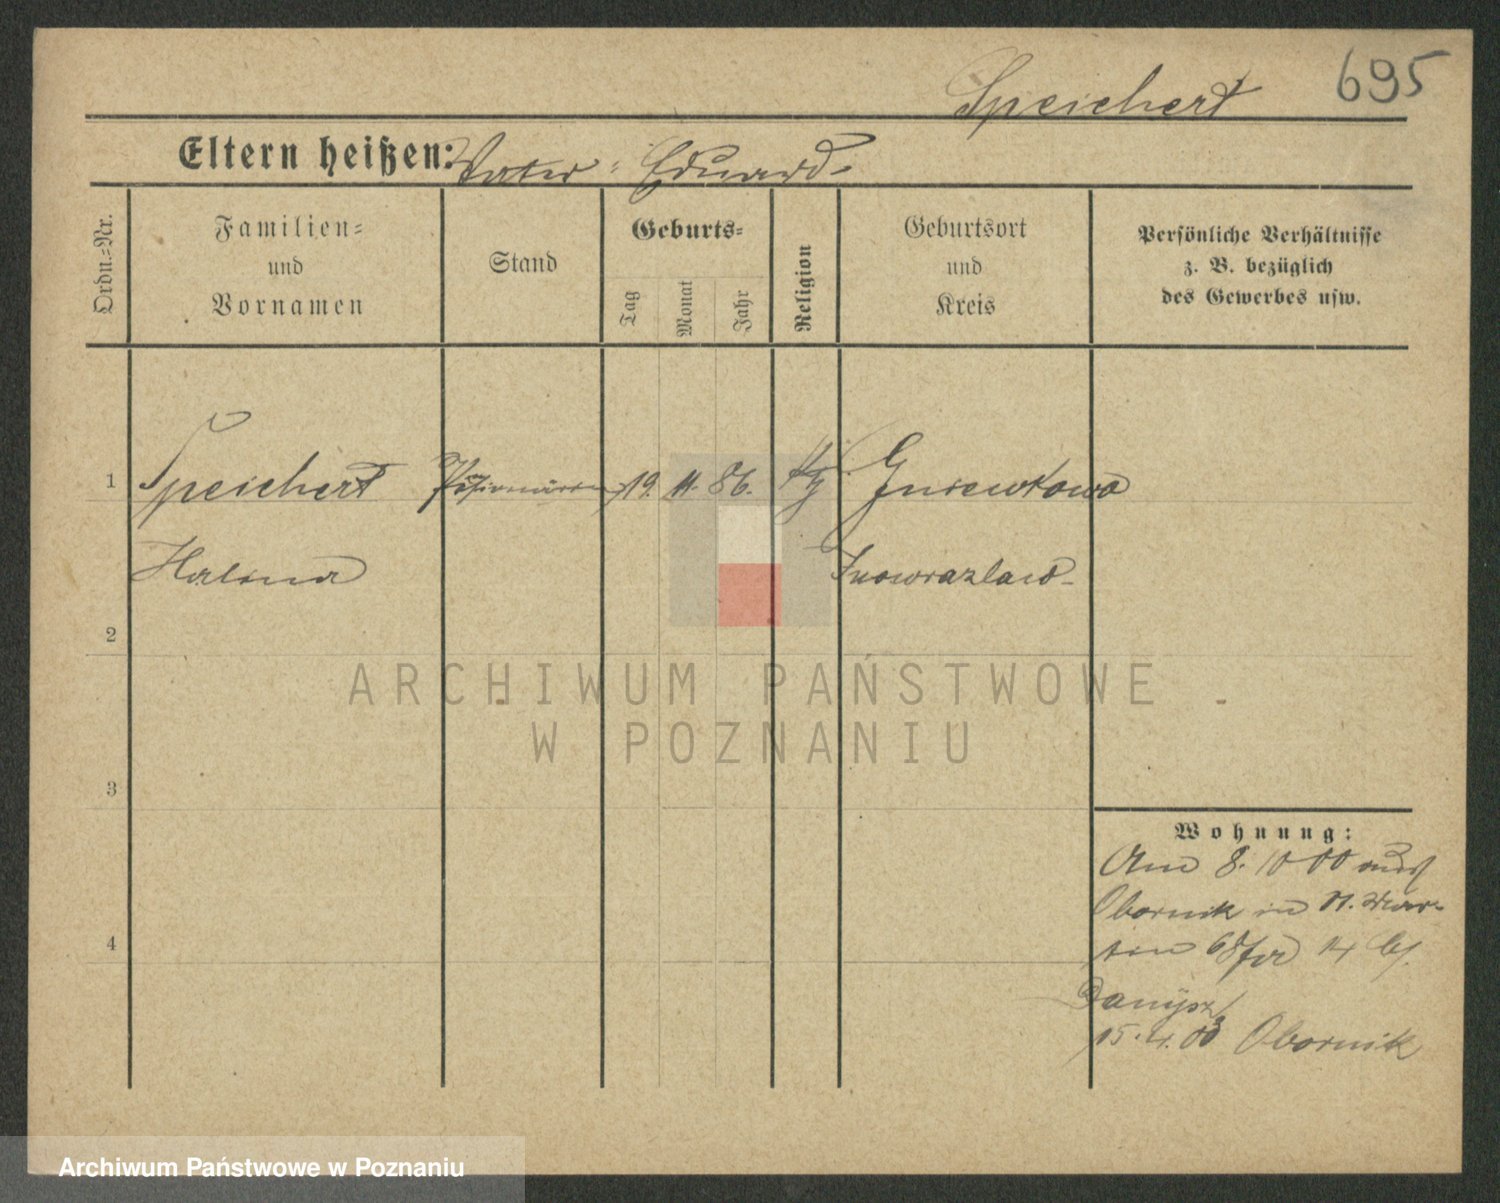 695
Speichert
Eltern heißen: Vater: Eduard
Ordn.=Nr.
Familien=
und
Vornamen
Stand
Geburts=
Tag
Monat
Jahr
Religion
Geburtsort
und
Kreis
Persönliche Verhältnisse
z. B. bezüglich
des Gewerbes usw.
1 Speichert 19. 11. 86. Gniewkowo
Halina Inowrazlaw
2
3
4
Wohnung:
8. 10 00
Obornik in St. Mar-
tin 68 14
Danysz
15. 4. 03 Obornik
ARCHIWUM PAŃSTWOWE
W POZNANIU
Archiwum Państwowe w Poznaniu